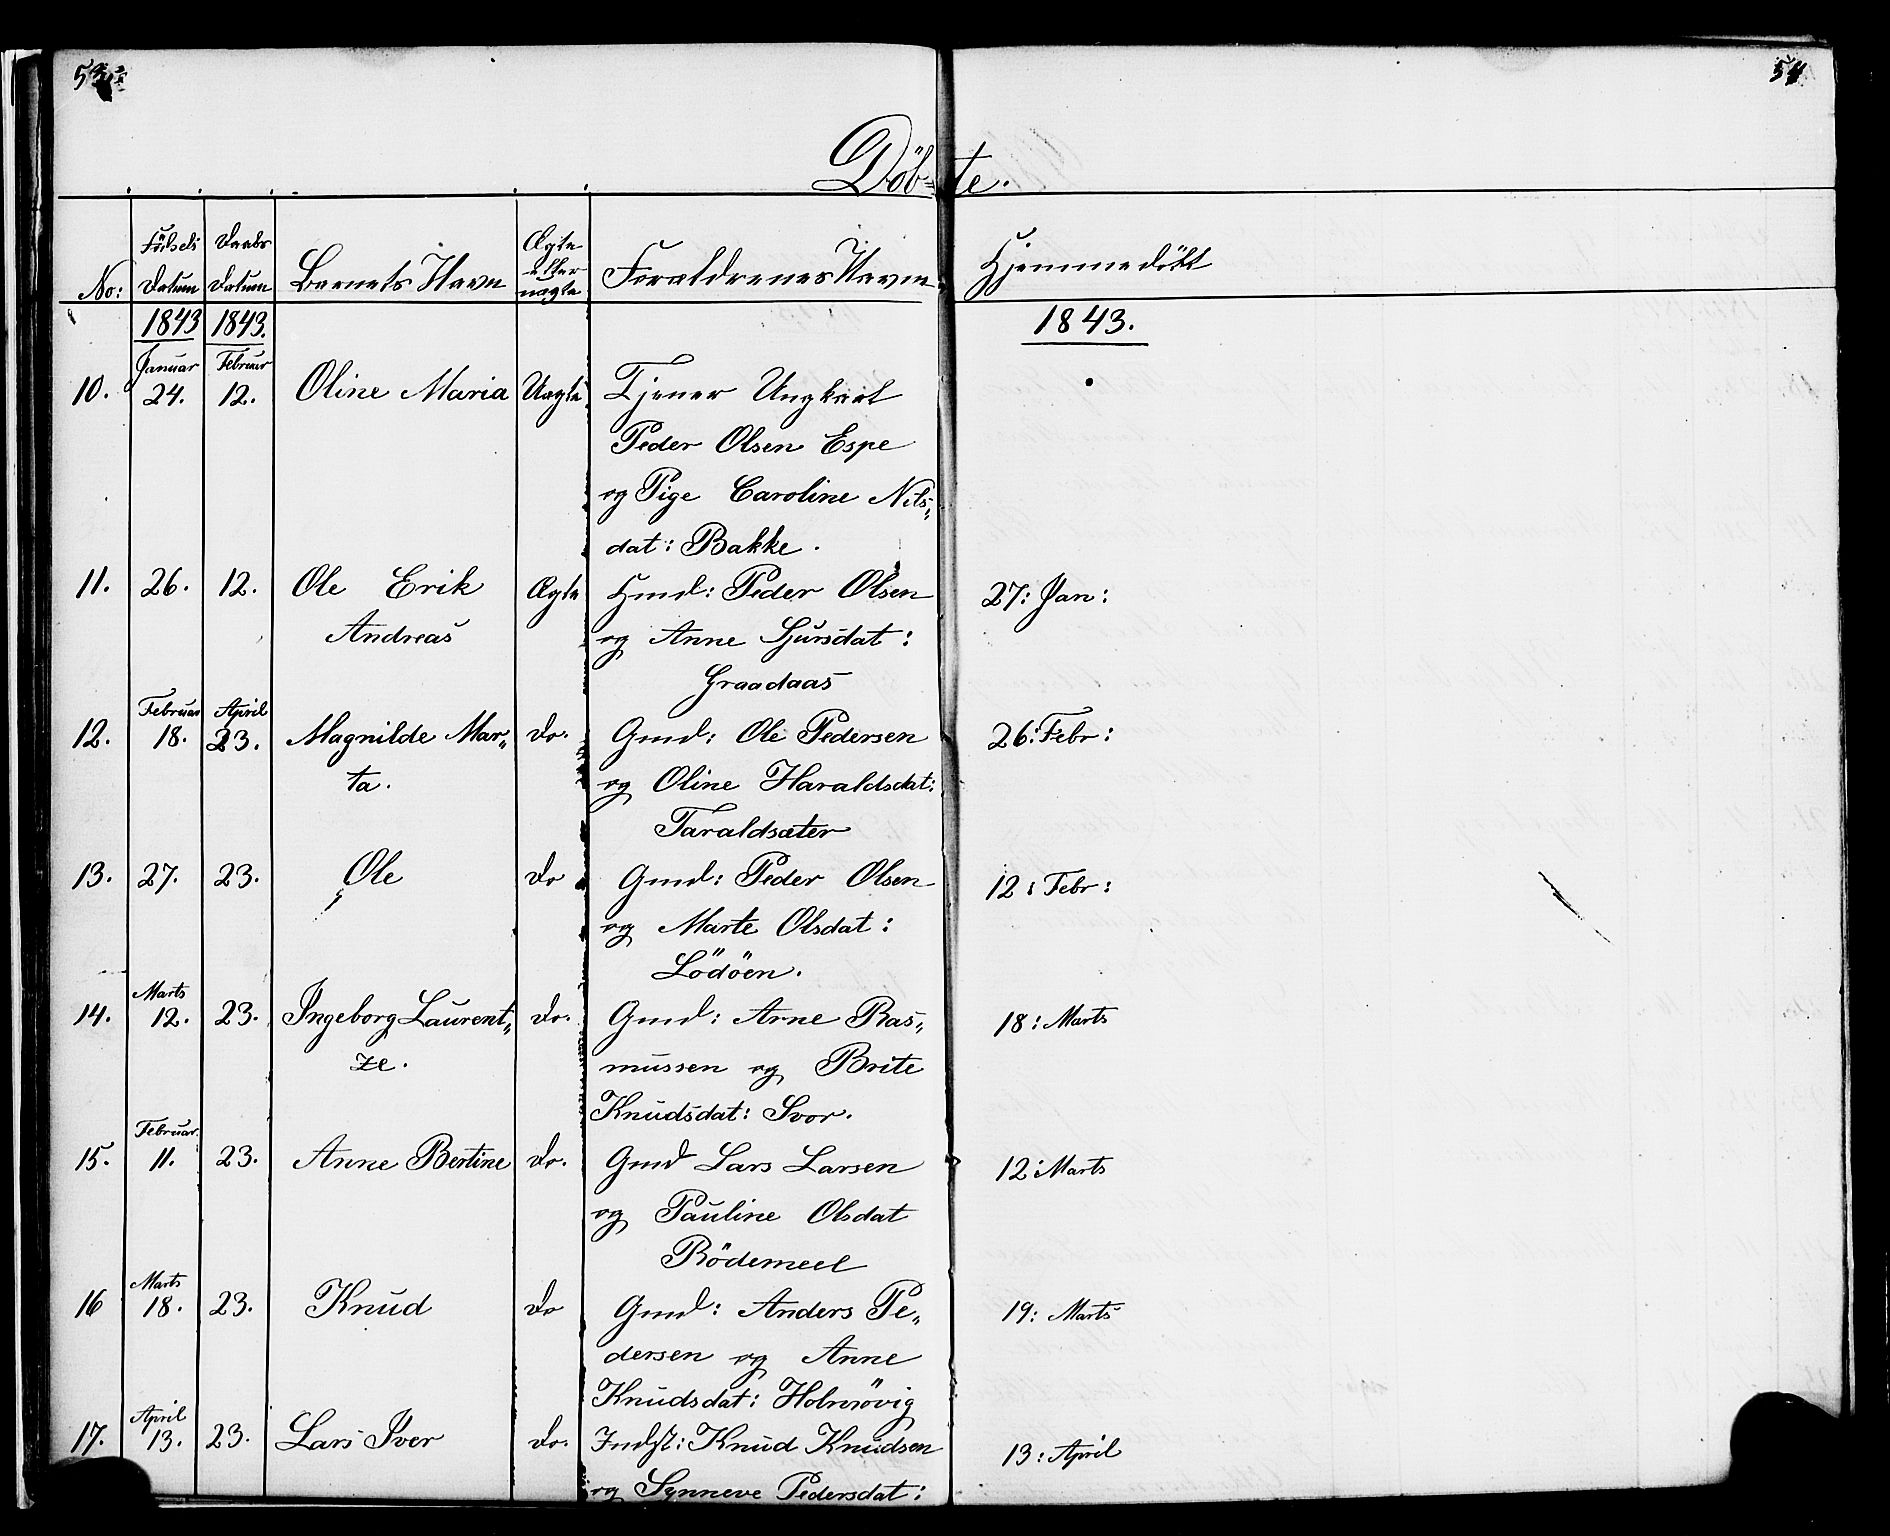 53
54
Döb=te.
No: Födsels Datum Daabs Datum Barnets Navn Ægte eller uægte Forældrenes Navne Hjemmedöbt
1843 1843. 1843.
Januar Februar
10. 24. 12. Oline Maria Uægte Tjener Ungkarl
Peder Olsen Espe
og Pige Caroline Nils„
dat: Bakke.
11. 26. 12. Ole Erik Ægte Hmd: Peder Olsen 27: Jan:
Andreas og Anne Sjursdat:
Graadaas
Februar April
12. 18. 23. Magnilde Mar„ do. Gmd: Ole Pedersen 26: Febr:
ta. og Oline Haraldsdat:
Taraldsæter
13. 27. 23. Ole do Gmd: Peder Olsen 12: Febr:
og Marte Olsdat:
Lödöen.
Marts
14. 12. 23. Ingeborg Laurent„ do. Gmd: Arne Ras„ 18: Marts
ze. mussen og Brite
Knudsdat: Svor.
Februar.
15. 11. 23. Anne Bertine do. Gmd Lars Larsen 12: Marts
og Pauline Olsdat
Rödemeel
Marts
16 18. 23. Knud do Gmd: Anders Pe„ 19: Marts
dersen og Anne
Knudsdat:
April
17. 13. 23. Lars Iver do. Indst: Knud Knudsen 13: April
og Synneve Pedersdat: